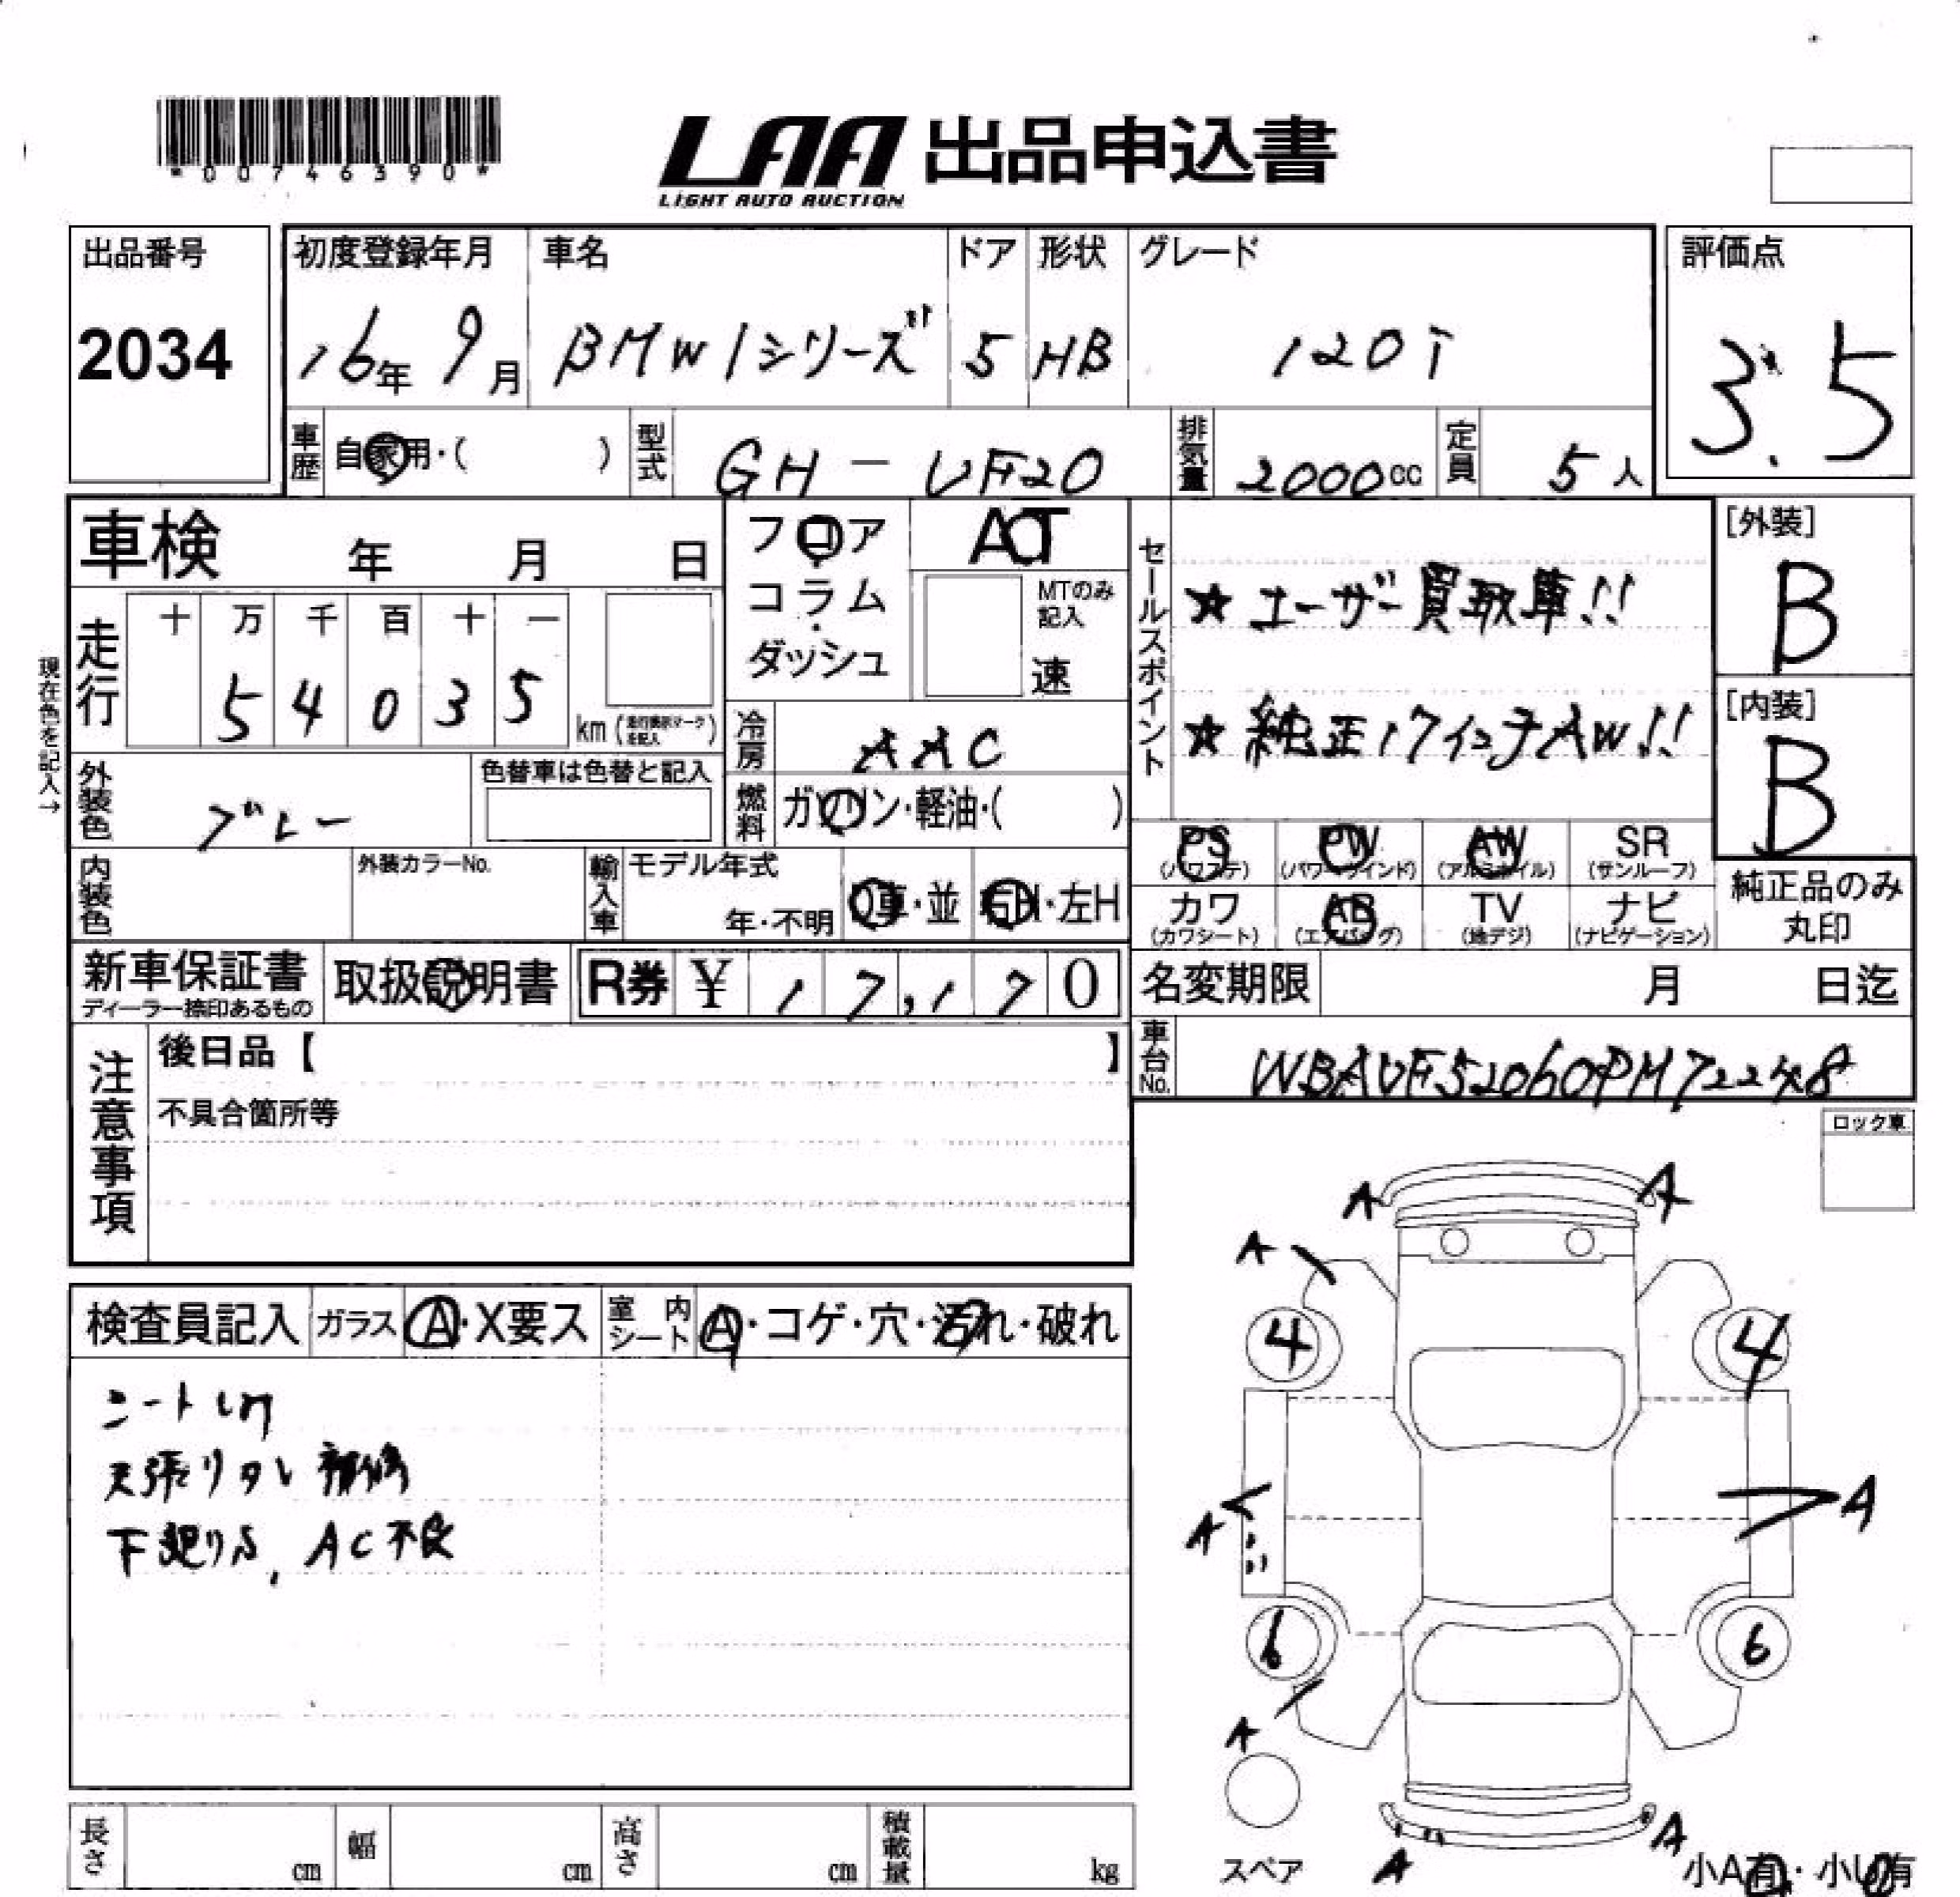 *00746390*
LAA 出品申込書
LIGHT AUTO AUCTION
出品番号
2034
初度登録年月
16年 9月
車名
BMW 1シリーズ
ドア
5
形状
HB
グレード
120i
評価点
3.5
車歴 自家用・( )
型式 GH-UF20
排気量 2000cc
定員 5人
車検 年 月 日
フロア・コラム・ダッシュ
AT
MTのみ記入
速
セールスポイント
★ユーザー買取車!!
★純正17インチAW!!
[外装]
B
[内装]
B
現在色を記入→
走行
十 万 千 百 十 一
5 4 0 3 5
km
冷房 AAC
外装色 ブルー
色替車は色替と記入
燃料 ガソリン・軽油・( )
PS PW AW SR
(パワステ) (パワーウインド) (アルミホイル) (サンルーフ)
カワ AB TV ナビ
(カワシート) (エアバッグ) (地デジ) (ナビゲーション)
純正品のみ丸印
内装色
外装カラーNo.
輸入車 モデル年式
年・不明
・並
右H・左H
新車保証書
ディーラー捺印あるもの
取扱説明書
R券 ¥ 17,170
名変期限 月 日迄
車台No.
注意事項
後日品【 】
不具合箇所等
ロック車
検査員記入
ガラス A・X要ス
室内シート A・コゲ・穴・汚れ・破れ
天張りタレ補修
AC不良
A A
A
4 4
A A
6 6
A
A A
スペア
小A有・小U有
長さ cm
幅 cm
高さ cm
積載量 kg